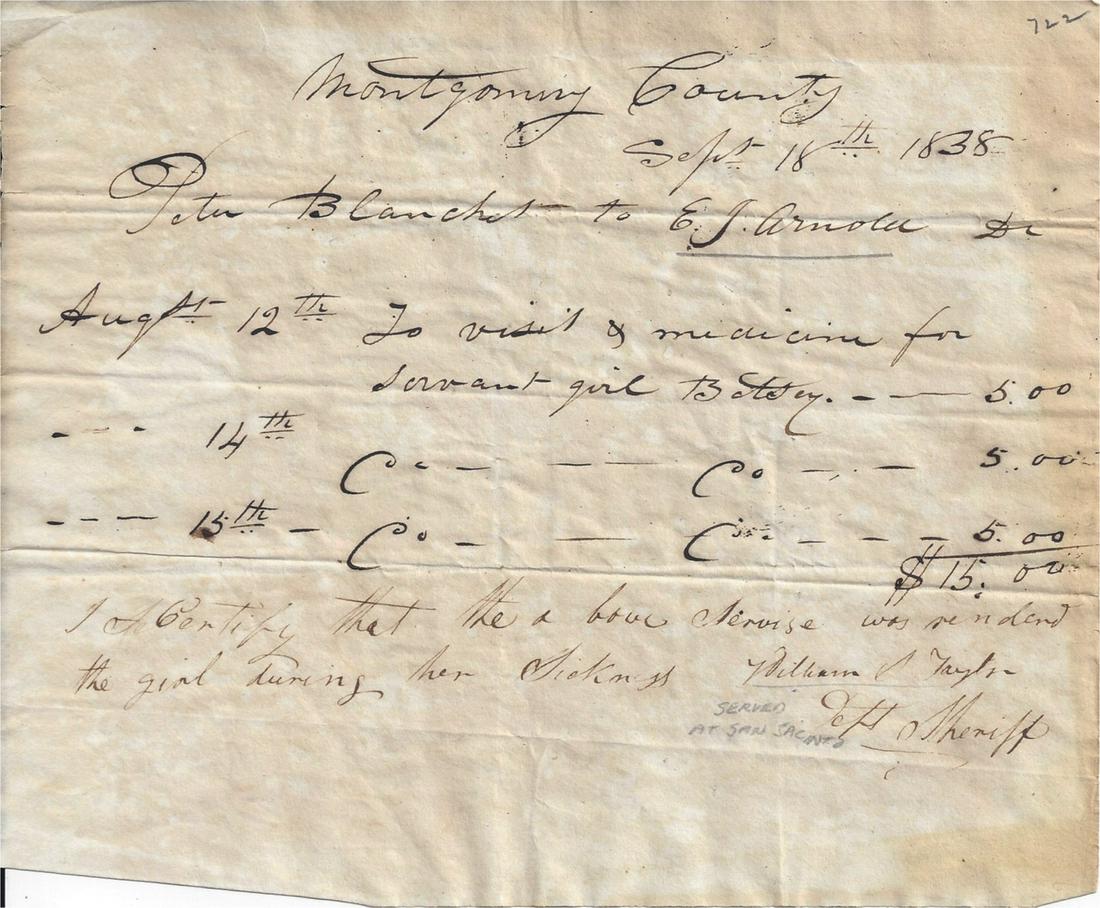 722
Montgomery County
Sept 18th 1838
Peter Blanchet to E. J. Arnold Dr
Augst 12th To visit & medicine for
servant girl Betsey. - — 5.00
- - - 14th Co - — — Co - - — 5.00
- - — 15th - Co - — — Co - - - 5.00
$15.00
I Certify that the a bove Servise was renderd
the girl during her Sickness William S Taylor
Dept Sheriff
SERVED
AT SAN JACINTO